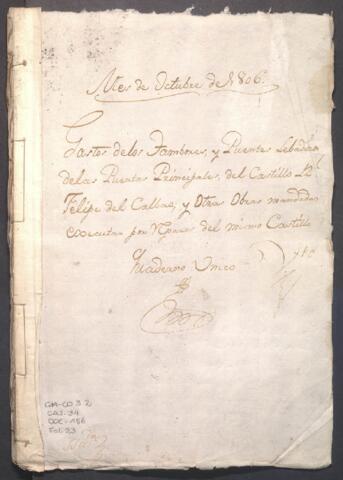 Mes de Octubre de 1806
Gastos de los Tambores, y Puentes Lebadisas
de las Puertas Principales, del Castillo Rl
Felipe del Callao; y Otras Obras mandadas
executar por Yguares del mismo Castillo
Quaderno Unico
GM-CO 3 2
CAJ. 34
DOC. 156
Fol. 23